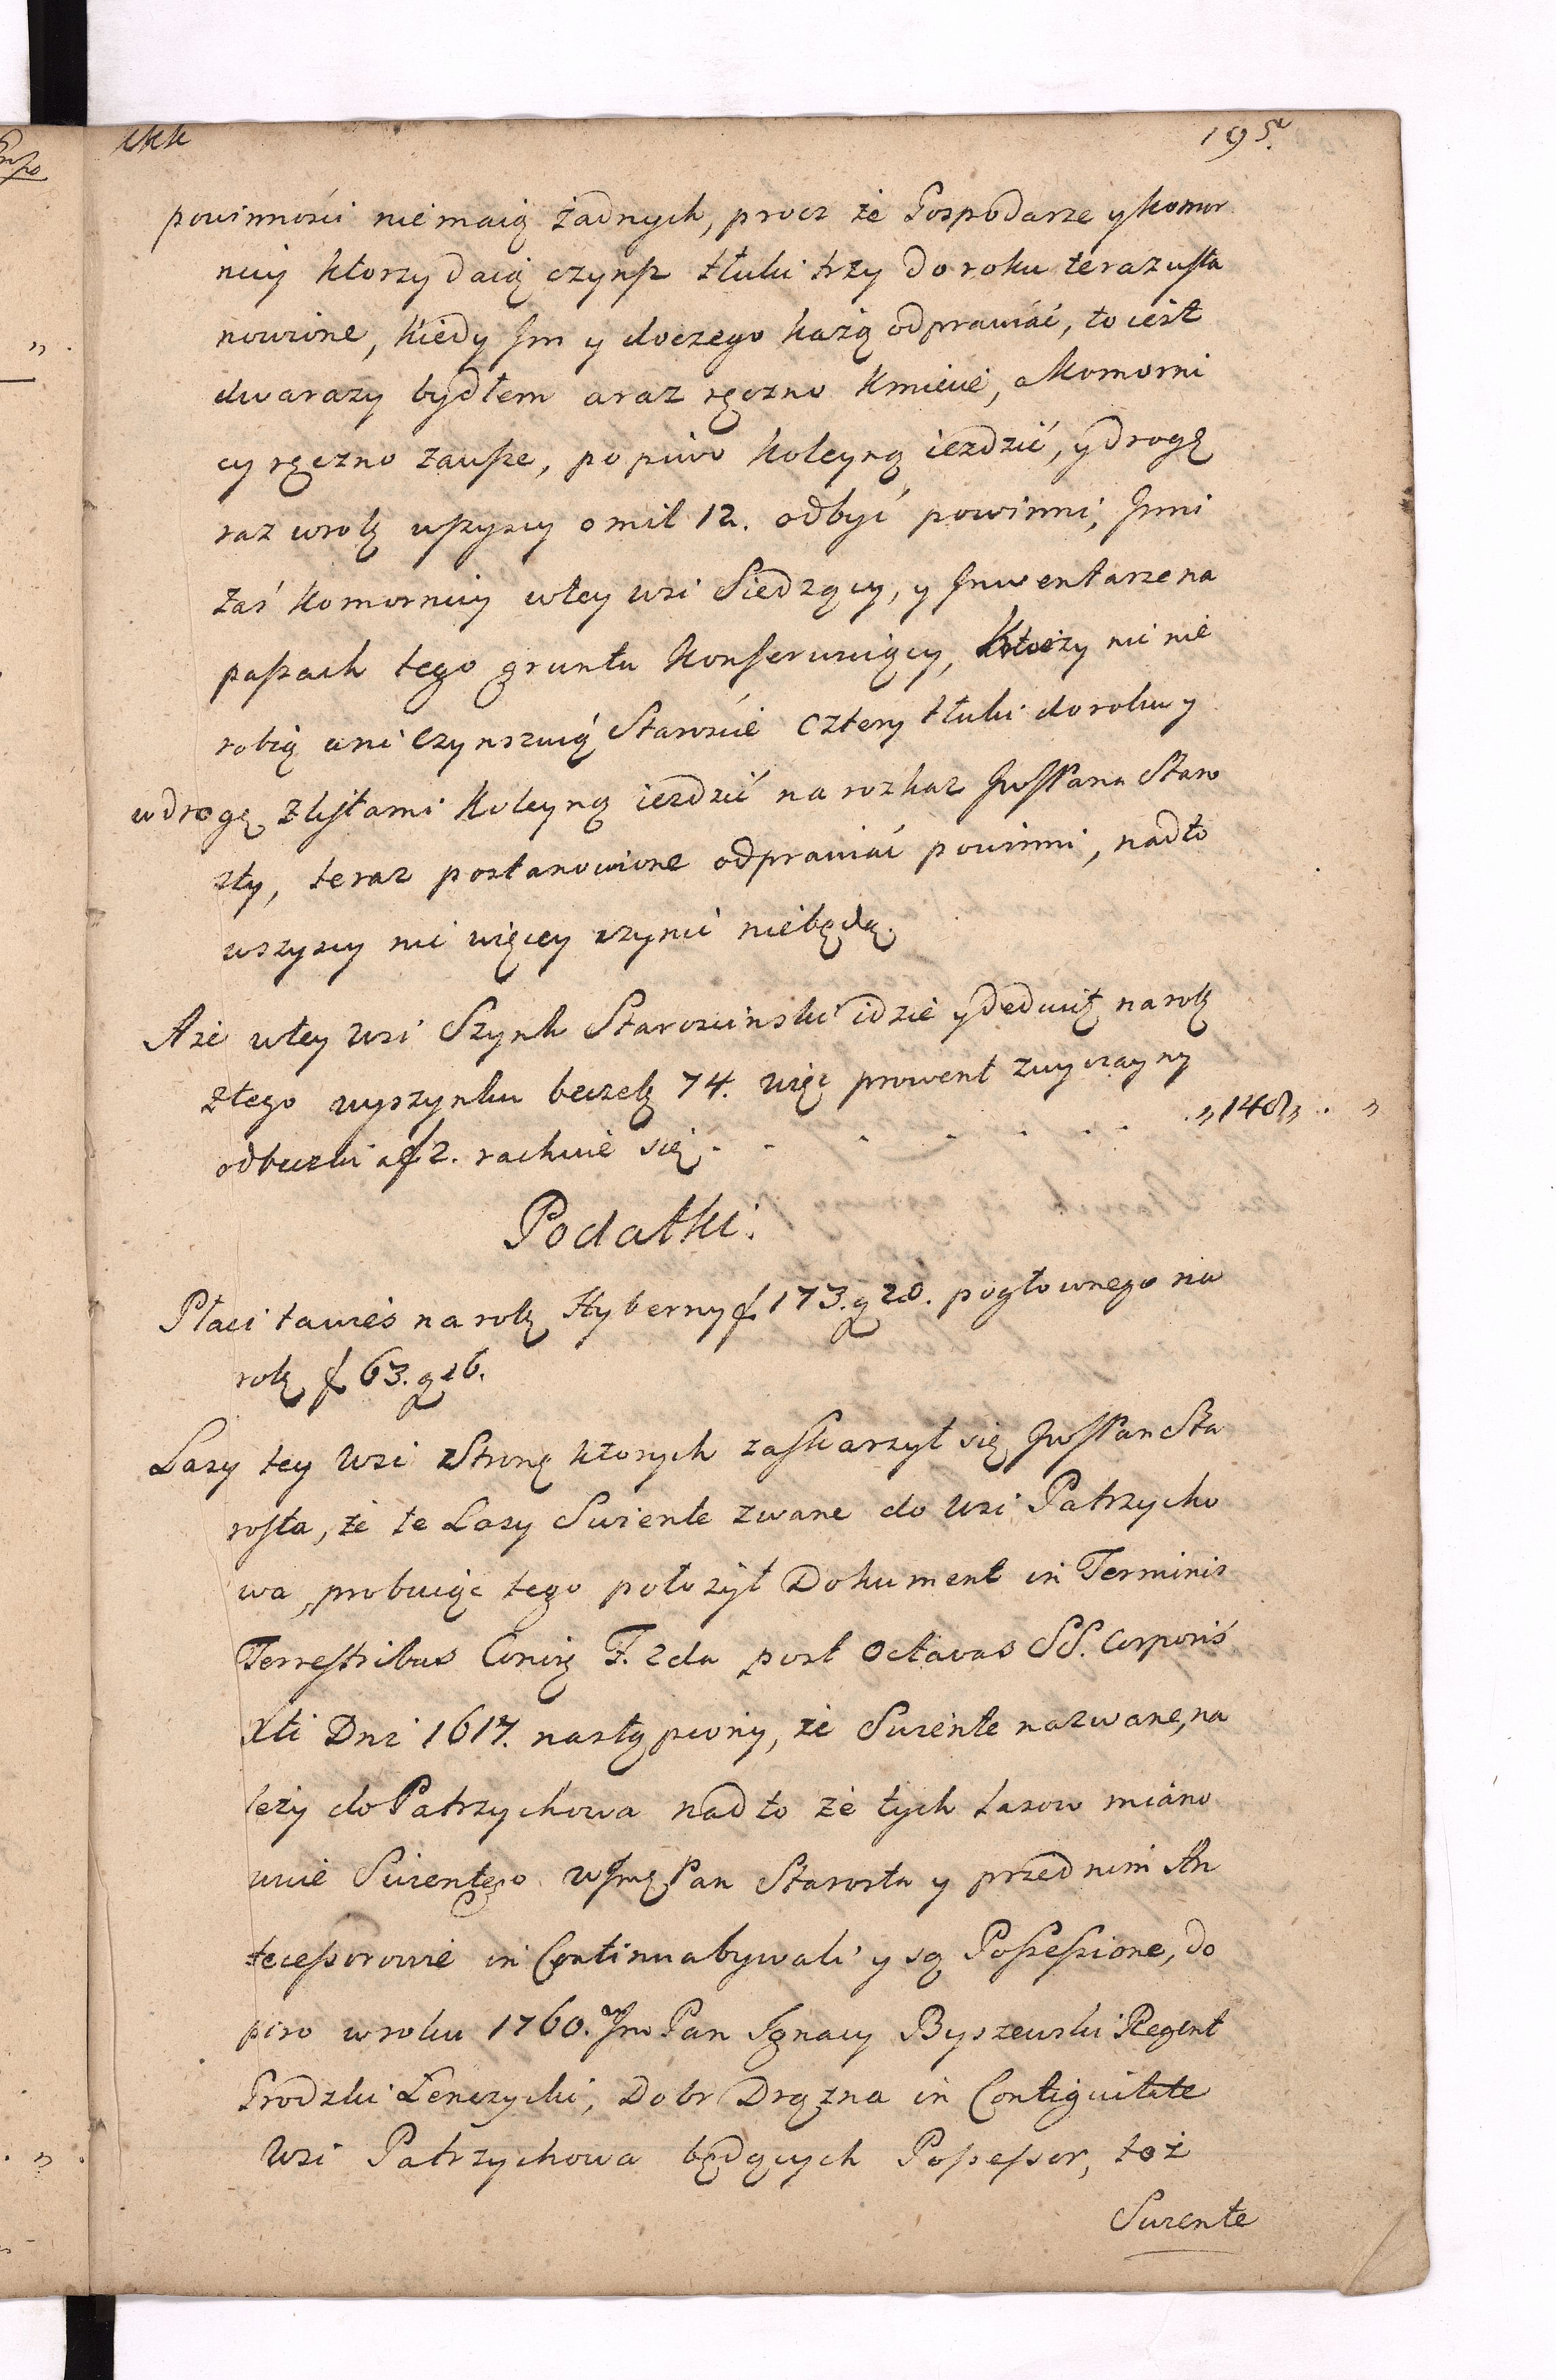 kkk 195.
powinności nie maią żadnych, procz że Gospodarze y komor
nicy ktorzy daią czynsz tłuki trzy do roku teraz usta
nowione, kiedy Im y do czego każą odprawiać, to iest
dwa razy bydłem a raz ręczno Kmiecie, a Komorni
cy ręczno zawsze, po piwo koleyną iezdzić, y drogę
raz w rok wszyscy o mil 12. odbyć powinni, Inni
zaś Komornicy w tey wsi Siedzący, y Inwentarze na
paszach tego gruntu konserwuiący, ktorzy nic nie
robią ani Czynszuią Staroście cztery tłuki do roku y
w drogę z listami koleyną iezdzić na rozkaz JWPana Staro
sty, teraz postanowione odprawiać powinni, nad to
wszyscy nic więcey czynić nie będą.
A że w tey wsi Szynk Starosciński idzie y deduit na rok
z tego wyszynku beczek 74. więc prowent zwyczayny
od beczki a f 2. rachuie się . . . . . . . „ 148 „ . „
Podatki.
Płaci ta wieś na rok Hyberny f 173. g 28. pogłownego na
rok f 63. g 16.
Lasy tey wsi z Stronę ktorych zaskarzył się JWPan Sta
rosta, że te Lasy Swiente zwane do wsi Patrzycho
wa, probuiąc tego położył Dokument in Terminis
Terrestribus F. 2da post Octavas SS. Corporis
Xti Dni 1617. nastąpiony, że Swiente nazwane, na
leży do Patrzychowa nad to że tych lasow miano
wicie Swientego Pan Starosta y przed nim An
tecessorowie in Continua bywali y są Possessione, do
piro w roku 1760. Jm Pan Ignacy Byszewski Regent
Grodzki Łenczycki, Dobr Drązna in Contiguitate
wsi Patrzychowa będących Possessor, toż
Swiente